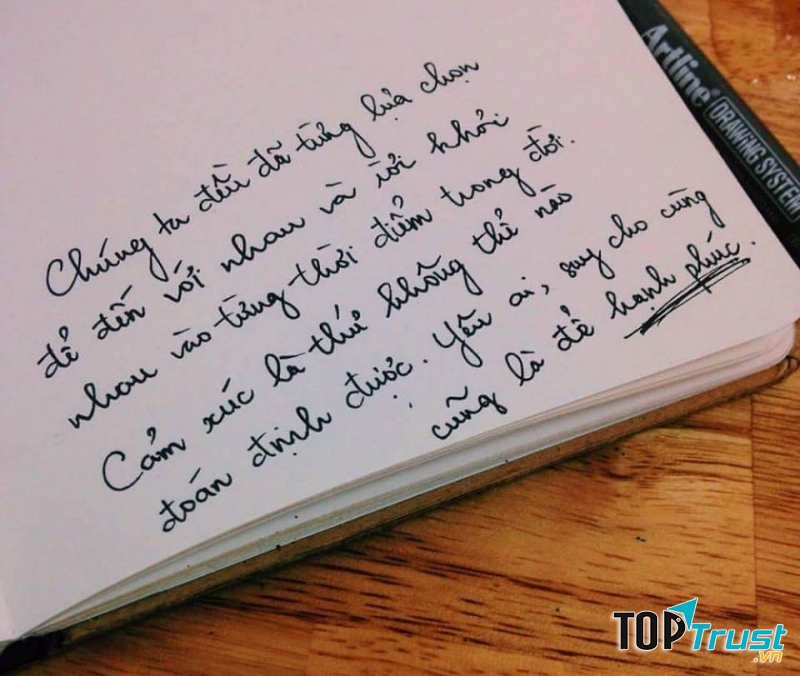 Chúng ta đều đã từng lựa chọn
để đến với nhau và rời khỏi
nhau vào từng thời điểm trong đời.
Cảm xúc là thứ không thể nào
đoán định được. Yêu ai, suy cho cùng
cũng là để hạnh phúc.
Artline® DRAWING SYSTEM
TOPTrust.vn